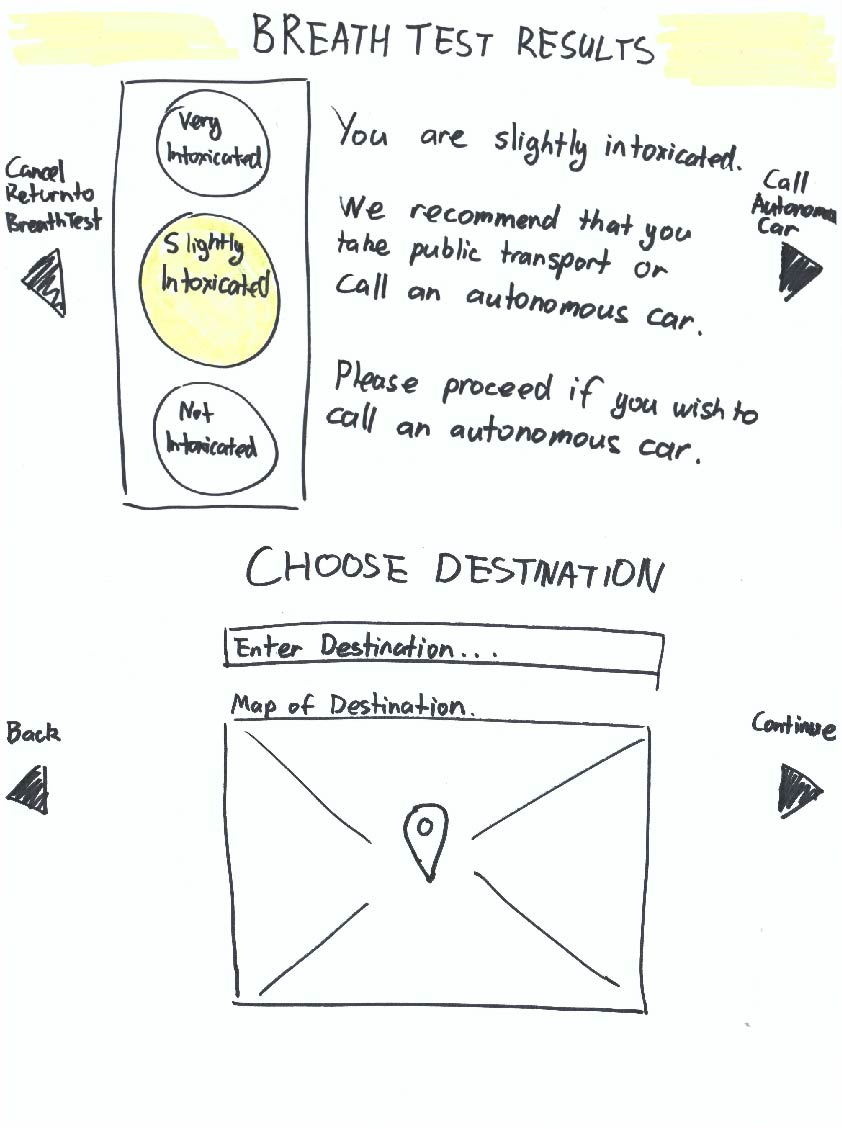 BREATH TEST RESULTS
Cancel
Return to
Breath Test
Very
Intoxicated
Slightly
Intoxicated
Not
Intoxicated
You are slightly intoxicated.
We recommend that you
take public transport or
call an autonomous car.
Please proceed if you wish to
call an autonomous car.
Call
Autonomo
Car
CHOOSE DESTINATION
Enter Destination...
Map of Destination.
Back
Continue